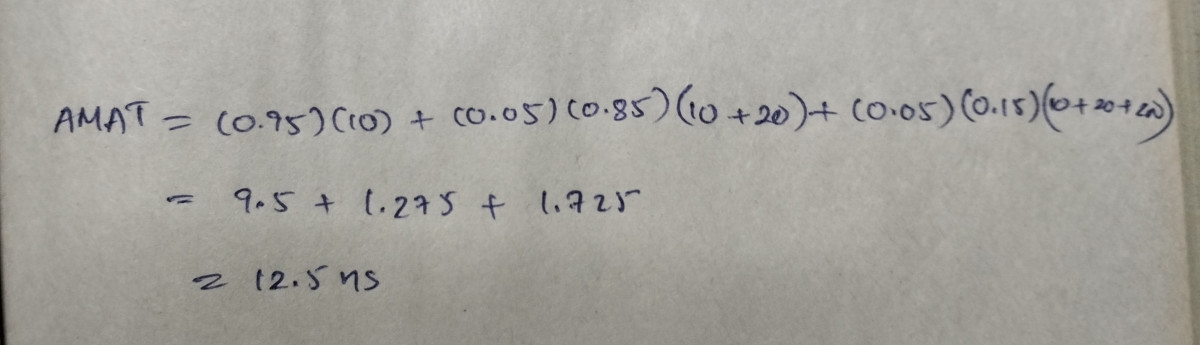 AMAT = (0.95)(10) + (0.05)(0.85)(10+20)+ (0.05)(0.15)(10+20+200)
= 9.5 + 1.275 + 1.725
= 12.5 ns